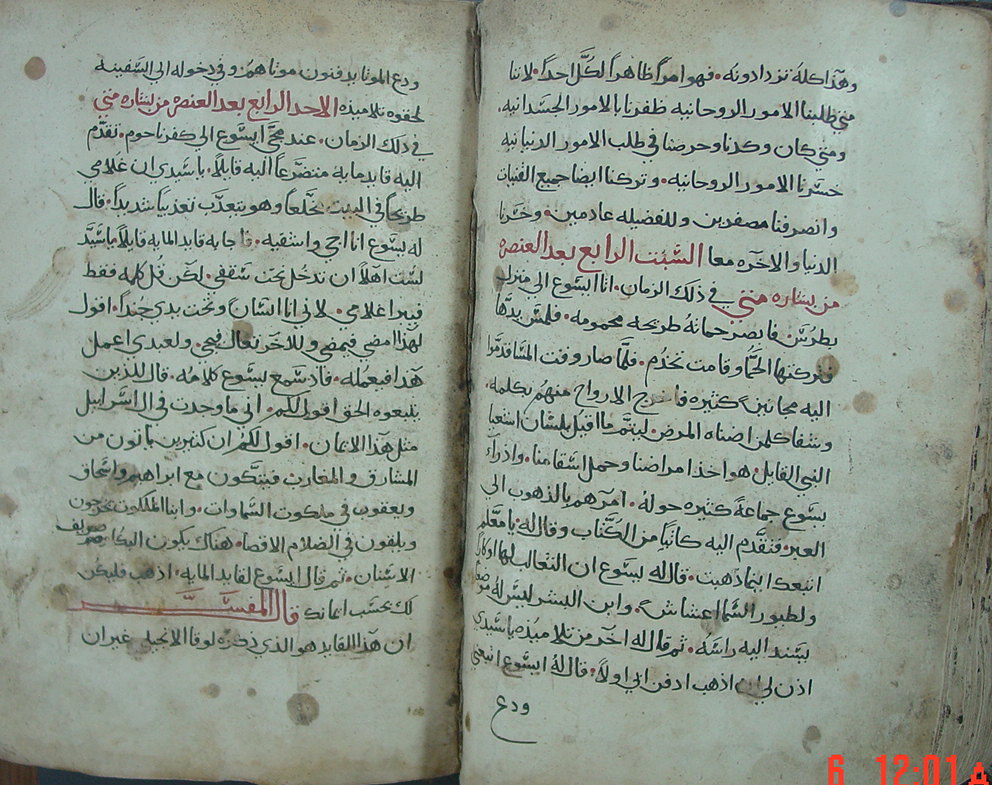 وهذا كله تزدادونه. فهوامراً ظاهراً لكل احداً. لاننا
متي طلبنا الامور الروحانيه ظفرنا بالامور الجسدانيه.
ومتي كان وكدنا وحرصنا في طلب الامور الدنيانيه
خسرنا الامور الروحانيه. وتركنا ايضا جميع القنيات
وانصرفنا مصفرين وللفضيله عادمين. وخسرنا
الدنيا والاخره معا السبت الرابع بعد العنصره
من بشاره متي في ذلك الزمان. اتا ايسوع الي منزل
بطرس فابصر حماته طريحه محمومه. فلمس يدها
فتركتها الحما وقامت تخدم. فلما صار وقت المسا قدموا
اليه مجانين كثيره فاخرج الارواح منهم بكلمه.
وشفا كلمن اضناه المرض. ليتم ما اقيل بلسان اشعيا
النبي القايل. هو اخذ امراضنا وحمل اسقامنا. واذ راا
يسوع جماعة كثيره حوله. امرهم بالذهوب الي
العبر. فتقدم اليه كاتباً من الكتاب وقال له. يا معلم
اتبعك اينما ذهبت. قال له يسوع ان الثعالب لها اوكاراً
ولطيور السما اعشاش. وابن البشر ليس له موضعاً
يسند اليه راسه. ثم قال له اخر من تلاميذه يا سيدي
اذن لي ان اذهب ادفن ابي اولاً. قال له ايسوع اتبعني
ودع
ودع الموتا يدفنون موتاهم. وفي دخوله الي السفينه
لحقوه تلاميذه الاحد الرابع بعد العنصره من بشاره متي
في ذلك الزمان. عند مجي ايسوع الي كفرناحوم. تقدم
اليه قايد مايه متضرعاً اليه قايلاً. يا سيدي ان غلامي
طريحا في البيت مخلعاً وهو يتعذب تعذيبا شديداً. قال
له يسوع انا اجي واشفيه. فاجابه قايد المايه قايلاً يا سيد
لست اهلاً ان تدخل تحت سقفي. لكن قل كلمه فقط
فيبرا غلامي. لاني انا انسان وتحت يدي جنداً. اقول
لهذا امضي فيمضي وللاخر تعال فيجي. ولعبدي اعمل
هذا فيعمله. فاذ سمع يسوع كلامه. قال للذين
يتبعوه الحق اقول لكم. اني ما وجدت في ال اسراييل
مثل هذا الايمان. اقول لكم ان كثيرين ياتون من
المشارق والمغارب فيتكون مع ابراهيم واسحاق
ويعقوب في ملكوت السماوات. وابنا الملكوت يخرجون
ويلقون في الضلام الاقصا. هناك يكون البكا وصريف
الاسنان. ثم قال ايسوع لقايد المايه. اذهب فليكن
لك بحسب ايمانك قال المفسر
ان هذا القايد هو الذي ذكره لوقا الانجيلي غير ان
6 12:01 A